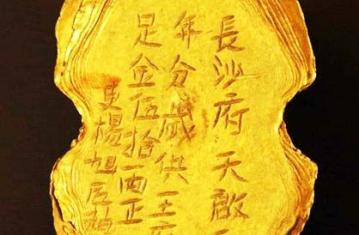 長沙府 天啟
年分歲供王府
足金伍拾兩正
吏楊旭匠趙